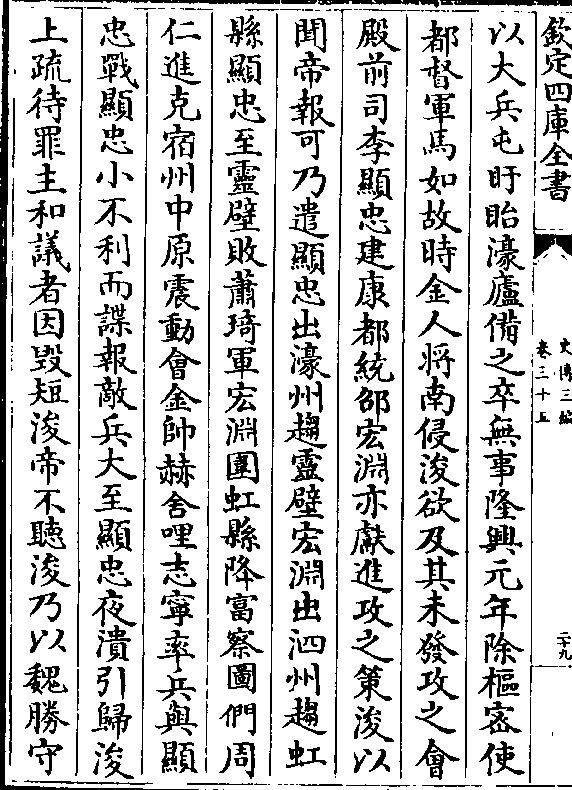 欽定四庫全書
史傳三編
卷三十五
二十九
以大兵屯盱眙濠廬備之卒無事隆興元年除樞宻使
都督軍馬如故時金人將南侵浚欲及其未發攻之會
殿前司李顯忠建康都統邵宏淵亦獻進攻之策浚以
聞帝報可乃遣顯忠出濠州趨靈壁宏淵出泗州趨虹
縣顯忠至靈壁敗蕭琦軍宏淵圍虹縣降富察圖們周
仁進克宿州中原震動會金帥赫舍哩志寧率兵與顯
忠戰顯忠小不利而諜報敵兵大至顯忠夜潰引歸浚
上疏待罪主和議者因毀短浚帝不聽浚乃以魏勝守